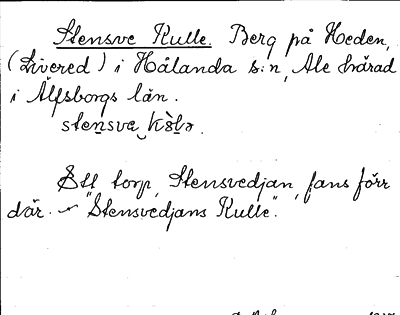 Stensve Kulle. Berg på Heden,
(Livered) i Hålanda s:n, Ale härad
i Älfsborgs län.
stensve
Ett torp, Stensvedjan, fans förr
där. "Stensvedjans Kulle".